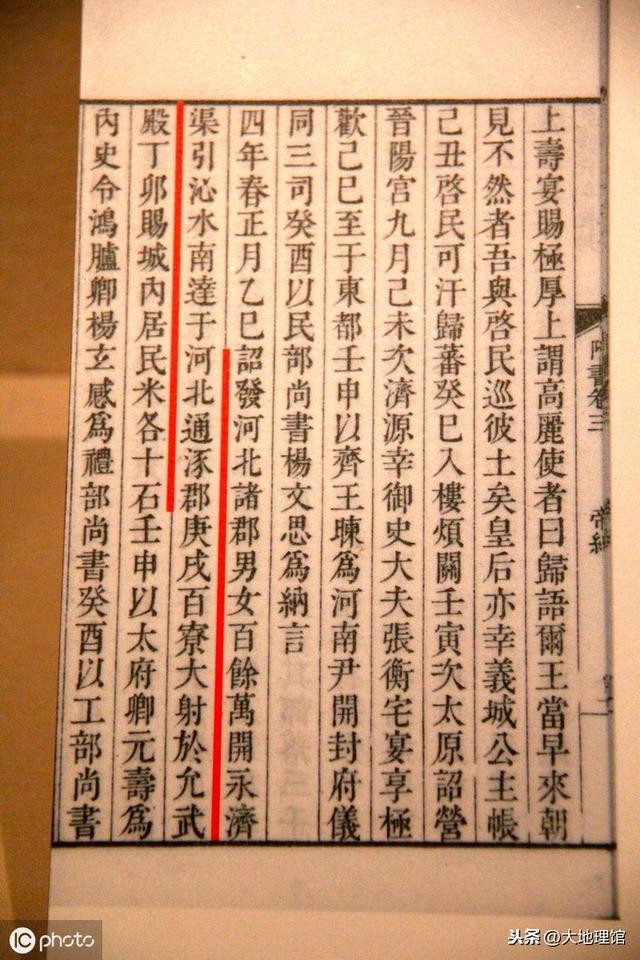 上壽宴賜極厚上謂高麗使者曰歸語爾王當早來朝
見不然者吾與啓民巡彼土矣皇后亦幸義城公主帳
己丑啓民可汗歸蕃癸巳入樓煩關壬寅次太原詔營
晉陽宮九月己未次濟源幸御史大夫張衡宅宴享極
歡己巳至于東都壬申以齊王暕爲河南尹開封府儀
同三司癸酉以民部尚書楊文思爲納言
四年春正月乙巳詔發河北諸郡男女百餘萬開永濟
渠引沁水南達于河北通涿郡庚戌百寮大射於允武
殿丁卯賜城內居民米各十石壬申以太府卿元壽爲
內史令鴻臚卿楊玄感爲禮部尚書癸酉以工部尚書
書卷三
帝紀
IC photo
头条 @大地理馆